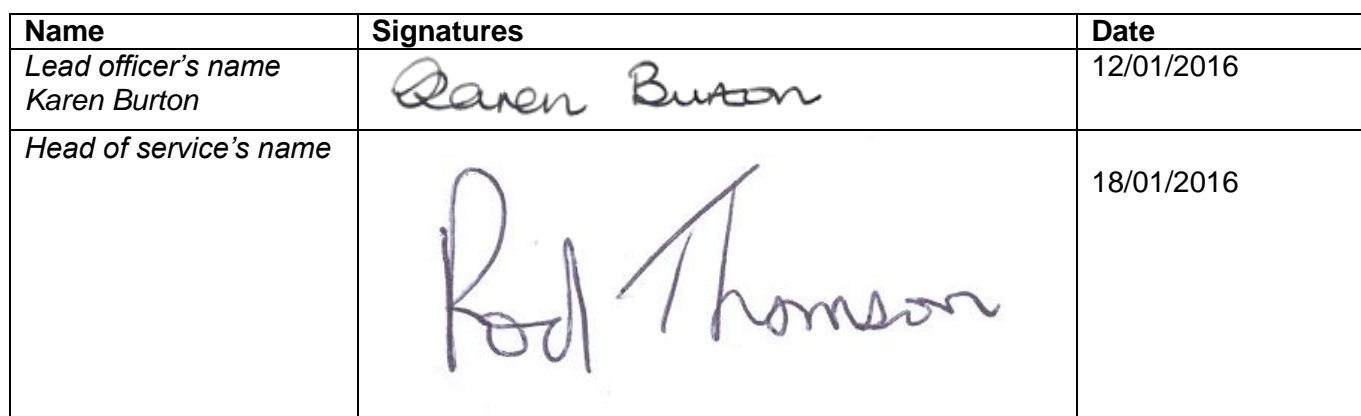 Name Signatures Date
Lead officer's name
Karen Burton
Karen Burton
12/01/2016
Head of service's name
Rod Thomson
18/01/2016